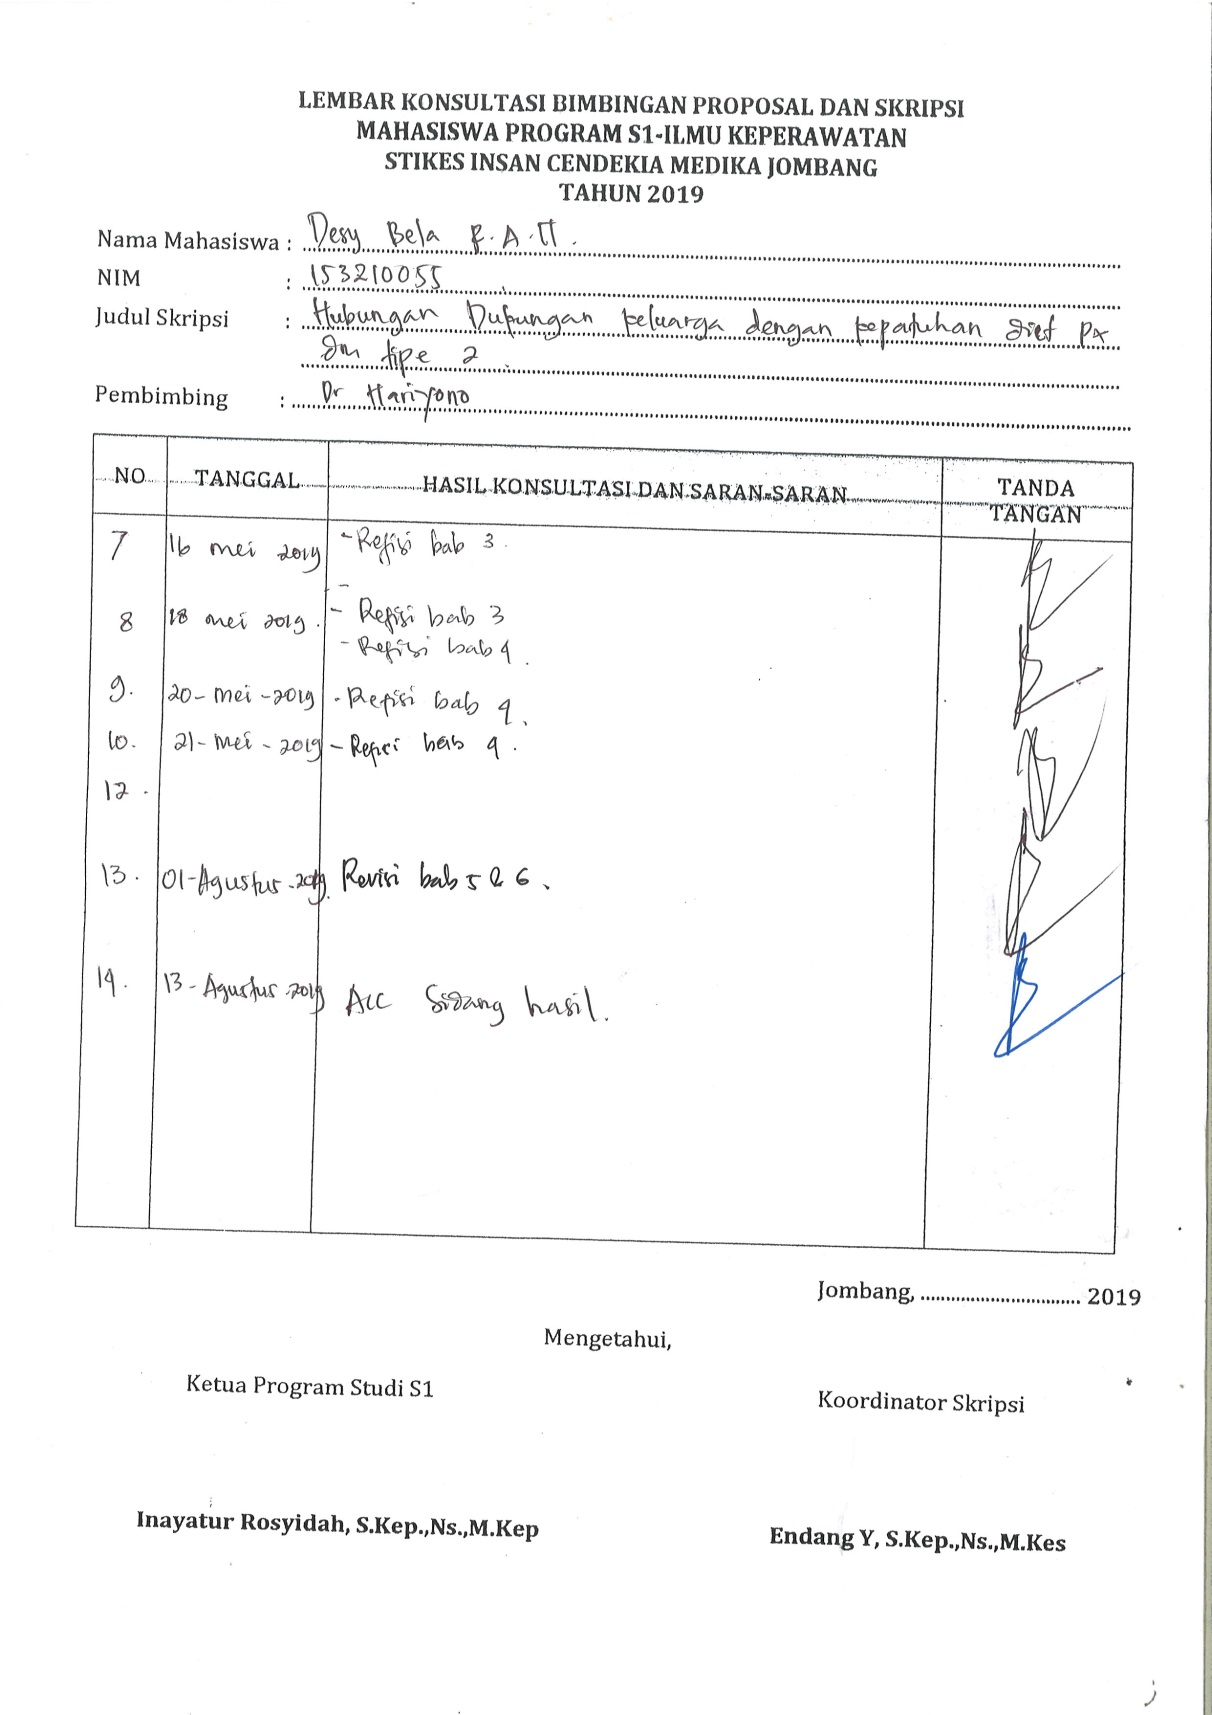 LEMBAR KONSULTASI BIMBINGAN PROPOSAL DAN SKRIPSI
MAHASISWA PROGRAM S1-ILMU KEPERAWATAN
STIKES INSAN CENDEKIA MEDIKA JOMBANG
TAHUN 2019
Nama Mahasiswa : Desy Bela
NIM : 153210055
Judul Skripsi : Hubungan Dukungan keluarga dengan kepatuhan diet px
dm tipe 2
Pembimbing : Dr Hariyono
NO TANGGAL HASIL KONSULTASI DAN SARAN-SARAN TANDA TANGAN
7 16 mei 2019 - Refisi bab 3.
8 18 mei 2019. - Refisi bab 3
- Refisi bab 4.
9. 20-mei-2019 - Refisi bab 4.
10. 21-mei-2019 - Refisi bab 4.
12.
13. 01-Agustus-2019. Revisi bab 5 & 6.
14. 13-Agustus-2019 Acc Sidang hasil.
Jombang, .............................. 2019
Mengetahui,
Ketua Program Studi S1
Koordinator Skripsi
Inayatur Rosyidah, S.Kep.,Ns.,M.Kep
Endang Y, S.Kep.,Ns.,M.Kes